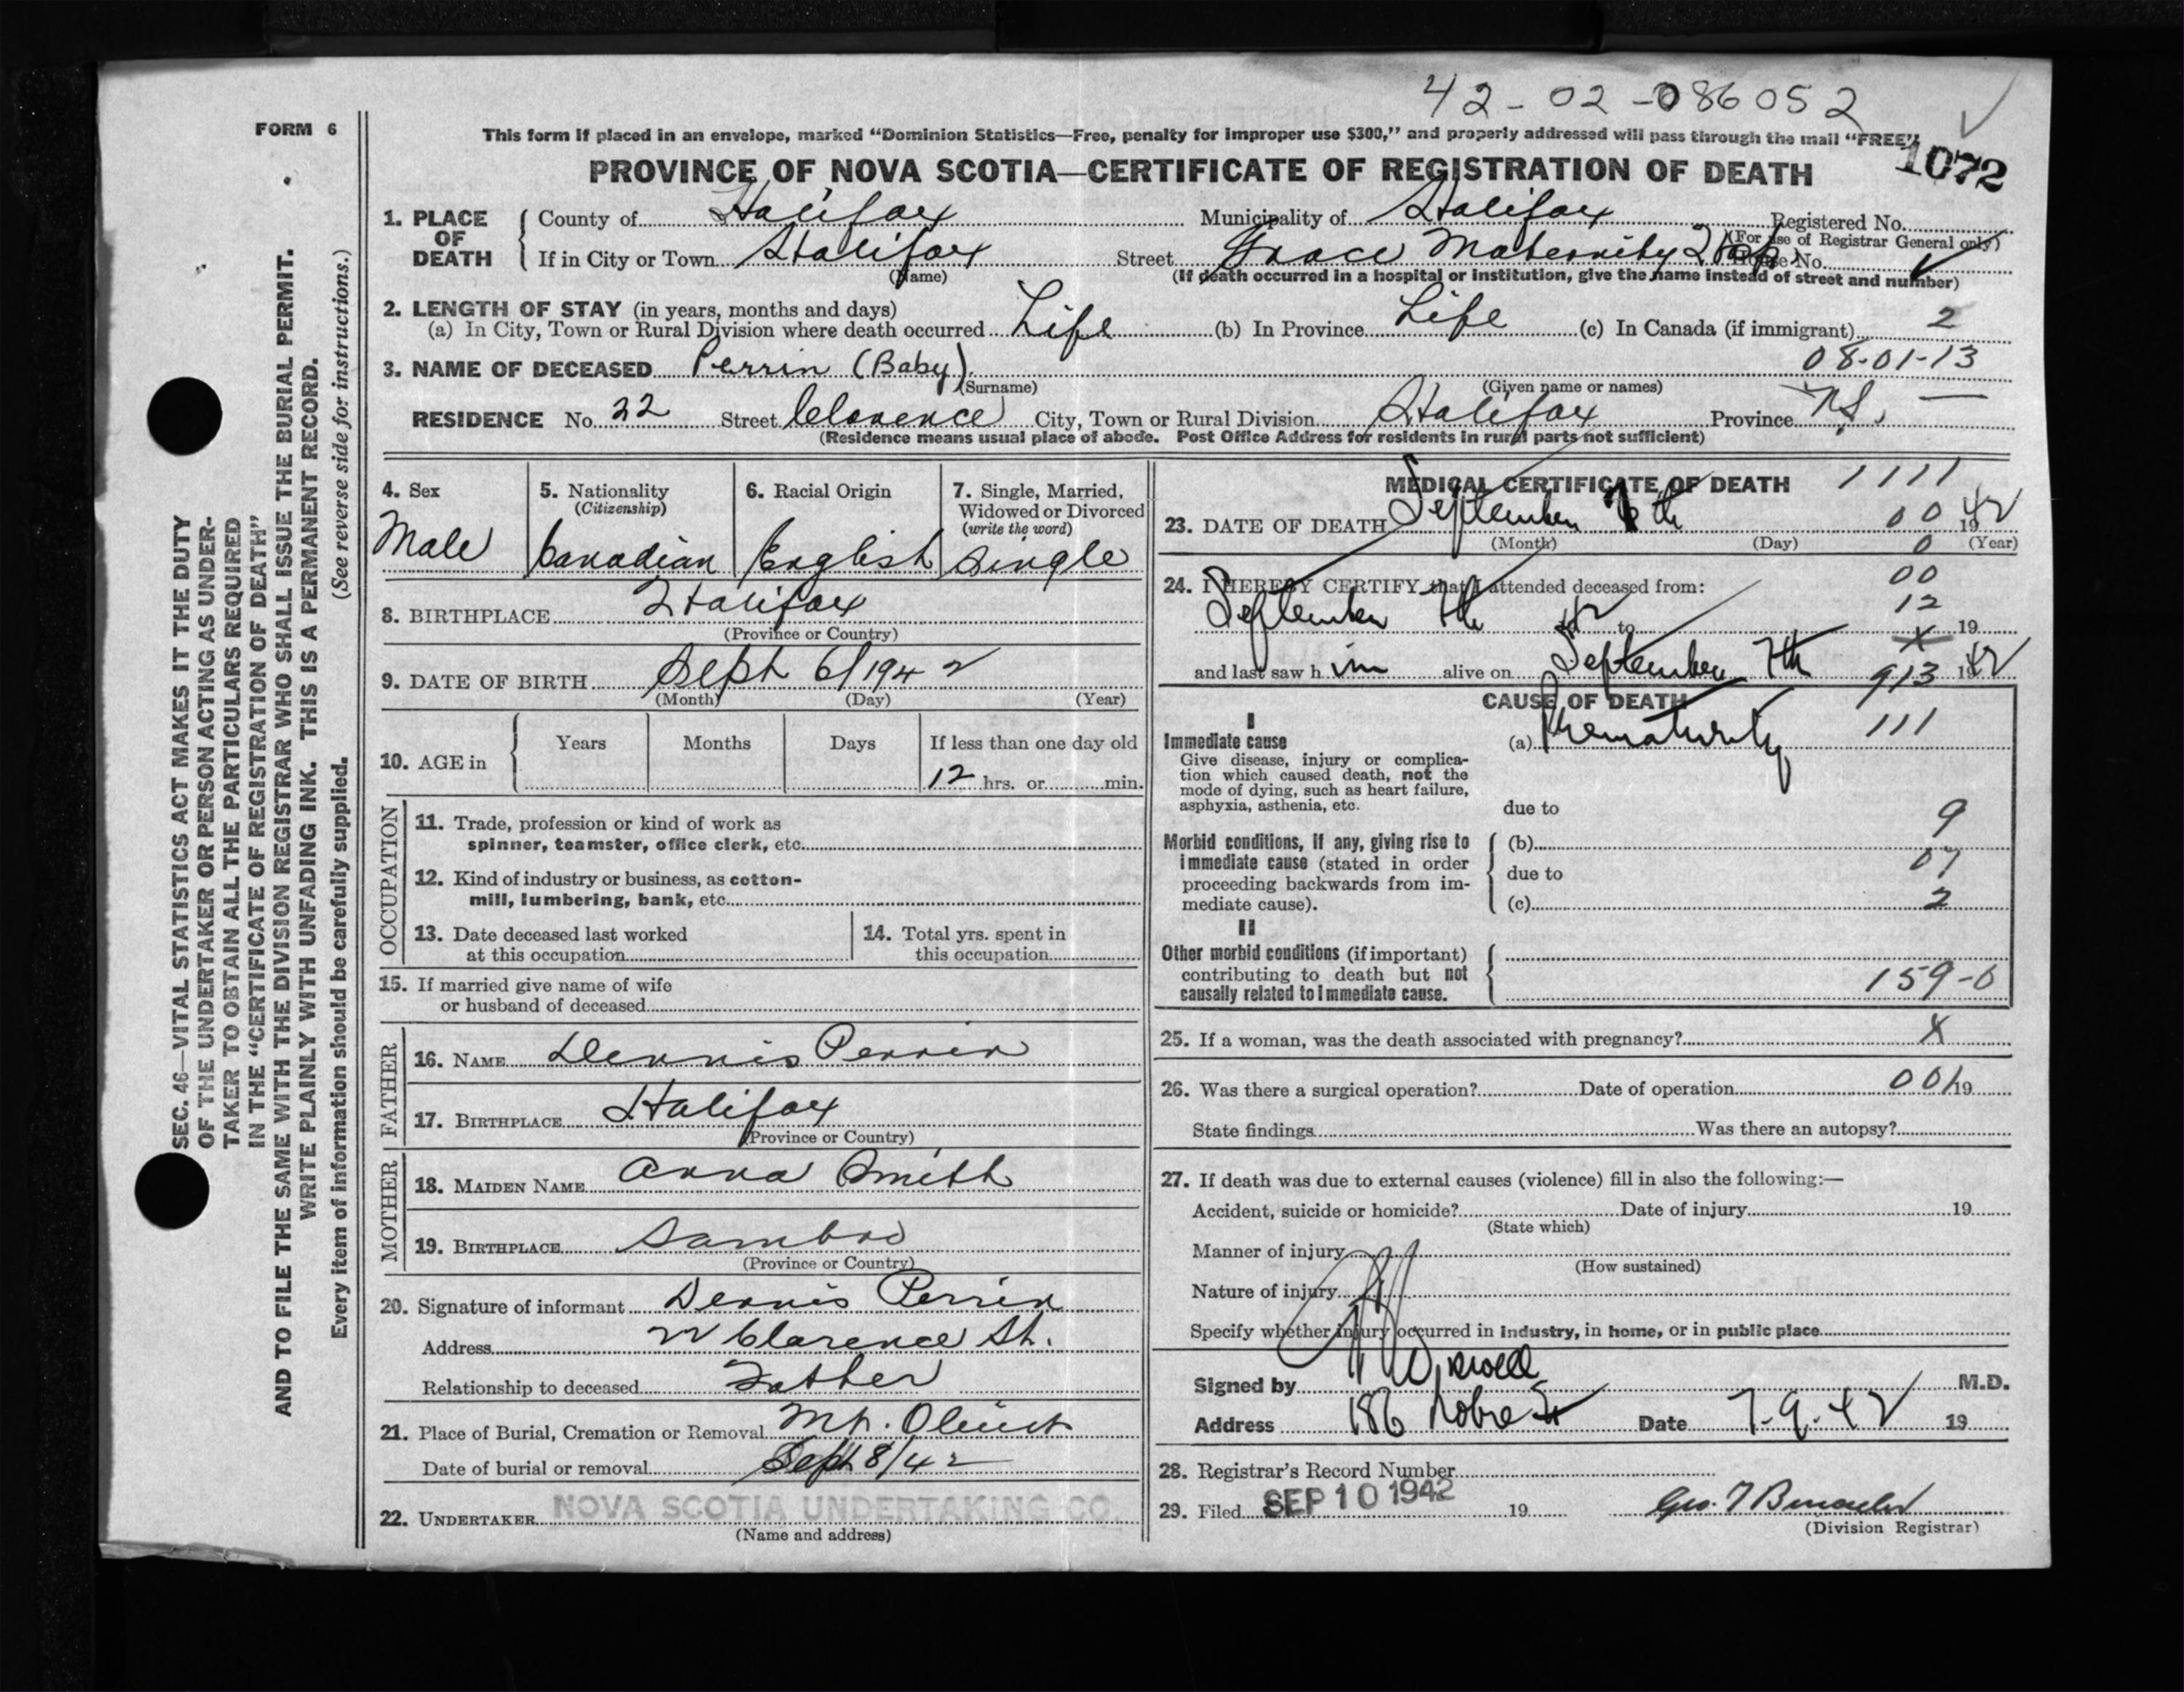 42-02-086052
FORM 6
This form if placed in an envelope, marked "Dominion Statistics—Free, penalty for improper use $300," and properly addressed will pass through the mail "FREE".
1072
PROVINCE OF NOVA SCOTIA—CERTIFICATE OF REGISTRATION OF DEATH
1. PLACE OF DEATH County of Halifax Municipality of Halifax Registered No.
(For use of Registrar General only)
If in City or Town Halifax Street Grace Maternity Hosp. House No.
(Name) (If death occurred in a hospital or institution, give the name instead of street and number)
2. LENGTH OF STAY (in years, months and days)
(a) In City, Town or Rural Division where death occurred Life (b) In Province Life (c) In Canada (if immigrant) 2
08-01-13
3. NAME OF DECEASED Perrin (Baby)
(Surname) (Given name or names)
RESIDENCE No. 22 Street Clarence City, Town or Rural Division Halifax Province N.S. —
(Residence means usual place of abode. Post Office Address for residents in rural parts not sufficient)
4. Sex
Male
5. Nationality
(Citizenship)
Canadian
6. Racial Origin
English
7. Single, Married,
Widowed or Divorced
(write the word)
Single
8. BIRTHPLACE Halifax
(Province or Country)
9. DATE OF BIRTH Sept 6/1942
(Month) (Day) (Year)
10. AGE in Years Months Days If less than one day old
12 hrs. or min.
OCCUPATION
11. Trade, profession or kind of work as
spinner, teamster, office clerk, etc.
12. Kind of industry or business, as cotton-
mill, lumbering, bank, etc.
13. Date deceased last worked
at this occupation
14. Total yrs. spent in
this occupation
15. If married give name of wife
or husband of deceased
FATHER
16. NAME Dennis Perrin
17. BIRTHPLACE Halifax
(Province or Country)
MOTHER
18. MAIDEN NAME Anna Smith
19. BIRTHPLACE Sambro
(Province or Country)
20. Signature of informant Dennis Perrin
Address 22 Clarence St.
Relationship to deceased Father
21. Place of Burial, Cremation or Removal Mt. Olivet
Date of burial or removal Sept 8/42
22. UNDERTAKER NOVA SCOTIA UNDERTAKING CO.
(Name and address)
MEDICAL CERTIFICATE OF DEATH 1111
23. DATE OF DEATH September 7th 00 1942
(Month) (Day) 0 (Year)
24. I HEREBY CERTIFY that I attended deceased from: 00
12
September 7th 42 to X 19
and last saw h im alive on September 7th 913 1942
CAUSE OF DEATH
I
Immediate cause (a) Prematurity 111
Give disease, injury or complica-
tion which caused death, not the
mode of dying, such as heart failure,
asphyxia, asthenia, etc. due to
9
Morbid conditions, if any, giving rise to (b)
immediate cause (stated in order 07
proceeding backwards from im- due to
mediate cause). (c) 2
II
Other morbid conditions (if important)
contributing to death but not
causally related to immediate cause. 159-0
25. If a woman, was the death associated with pregnancy? X
26. Was there a surgical operation? Date of operation 00 19
State findings Was there an autopsy?
27. If death was due to external causes (violence) fill in also the following:—
Accident, suicide or homicide? Date of injury 19
(State which)
Manner of injury
(How sustained)
Nature of injury
Specify whether injury occurred in industry, in home, or in public place
Signed by M.D.
Address 186 Robie St Date 7-9-42 19
28. Registrar's Record Number
29. Filed SEP 10 1942 19 Geo. T
(Division Registrar)
SEC. 46—VITAL STATISTICS ACT MAKES IT THE DUTY
OF THE UNDERTAKER OR PERSON ACTING AS UNDER-
TAKER TO OBTAIN ALL THE PARTICULARS REQUIRED
IN THE "CERTIFICATE OF REGISTRATION OF DEATH"
AND TO FILE THE SAME WITH THE DIVISION REGISTRAR WHO SHALL ISSUE THE BURIAL PERMIT.
WRITE PLAINLY WITH UNFADING INK. THIS IS A PERMANENT RECORD.
Every item of information should be carefully supplied. (See reverse side for instructions.)